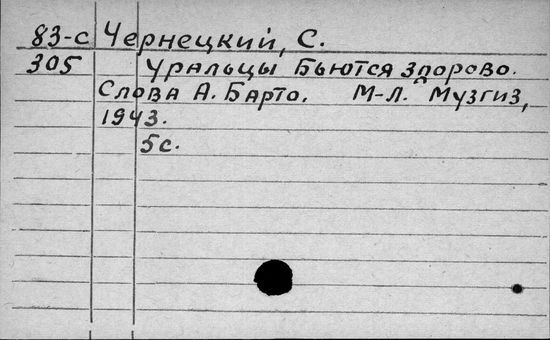 83-с Чернецкий, С.
305 Уральцы бьются здорово.
Слова А. Барто. М-Л. Музгиз,
1943.
5с.